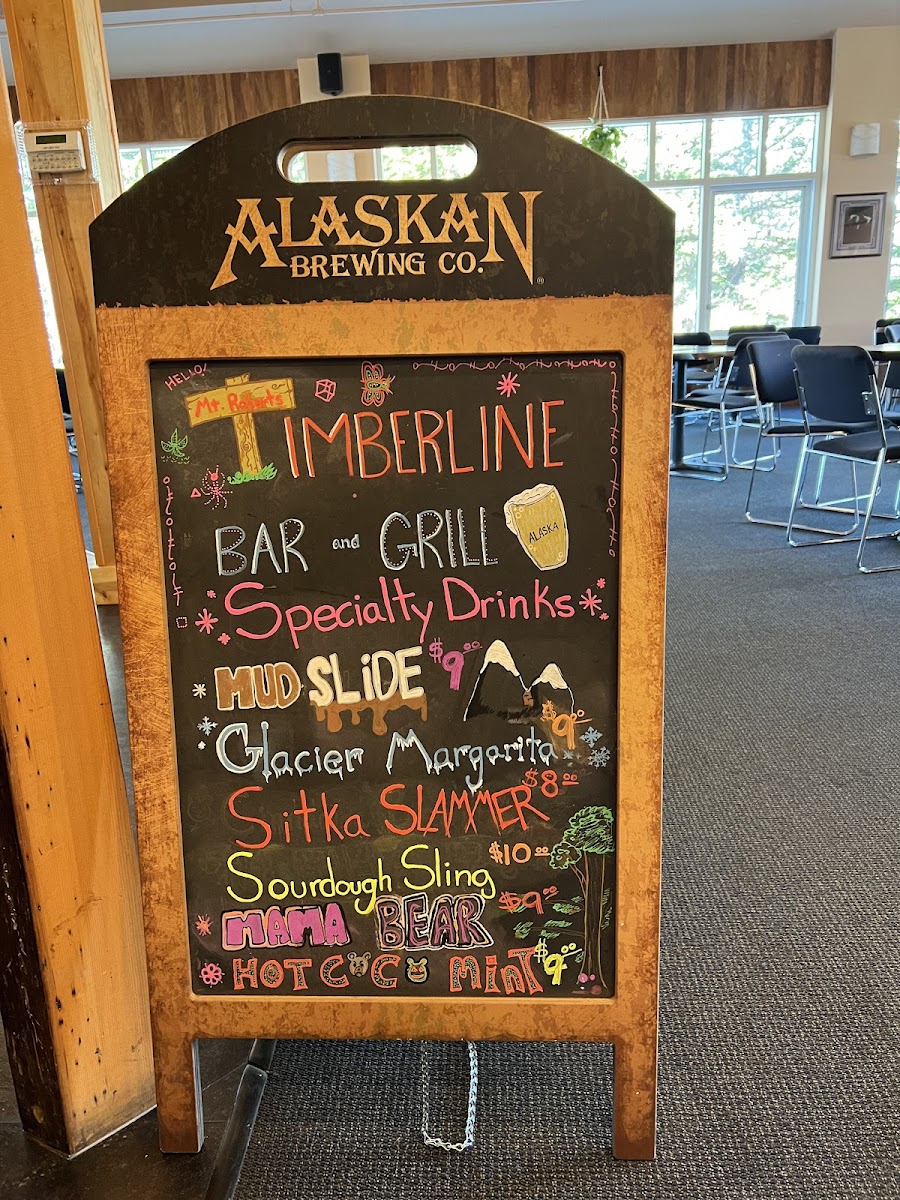 ALASKAN
BREWING CO.
HELLO!
Mt. Roberts
TIMBERLINE
BAR and GRILL
ALASKA
Specialty Drinks
MUD SLIDE $9.00
Glacier Margarita $9.00
Sitka SLAMMER $8.00
Sourdough Sling $10.00
MAMA BEAR $9.00
HOT COCO MINT $9.00